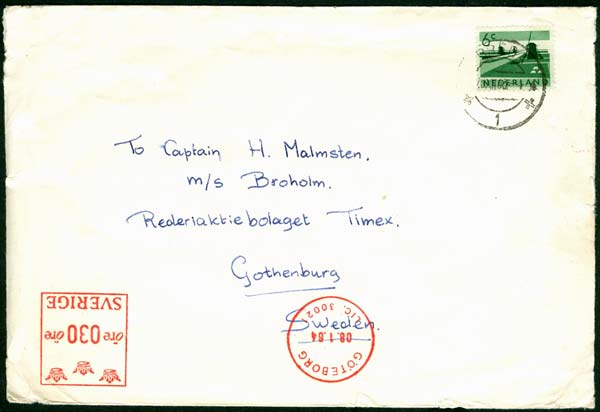 6c
NEDERLAND
1
To Captain H. Malmsten.
m/s Broholm.
Rederiaktiebolaget Timex.
Gothenburg
Sweden.
SVERIGE
öre 030 öre
GÖTEBORG
08.1.64
LIC. 3002